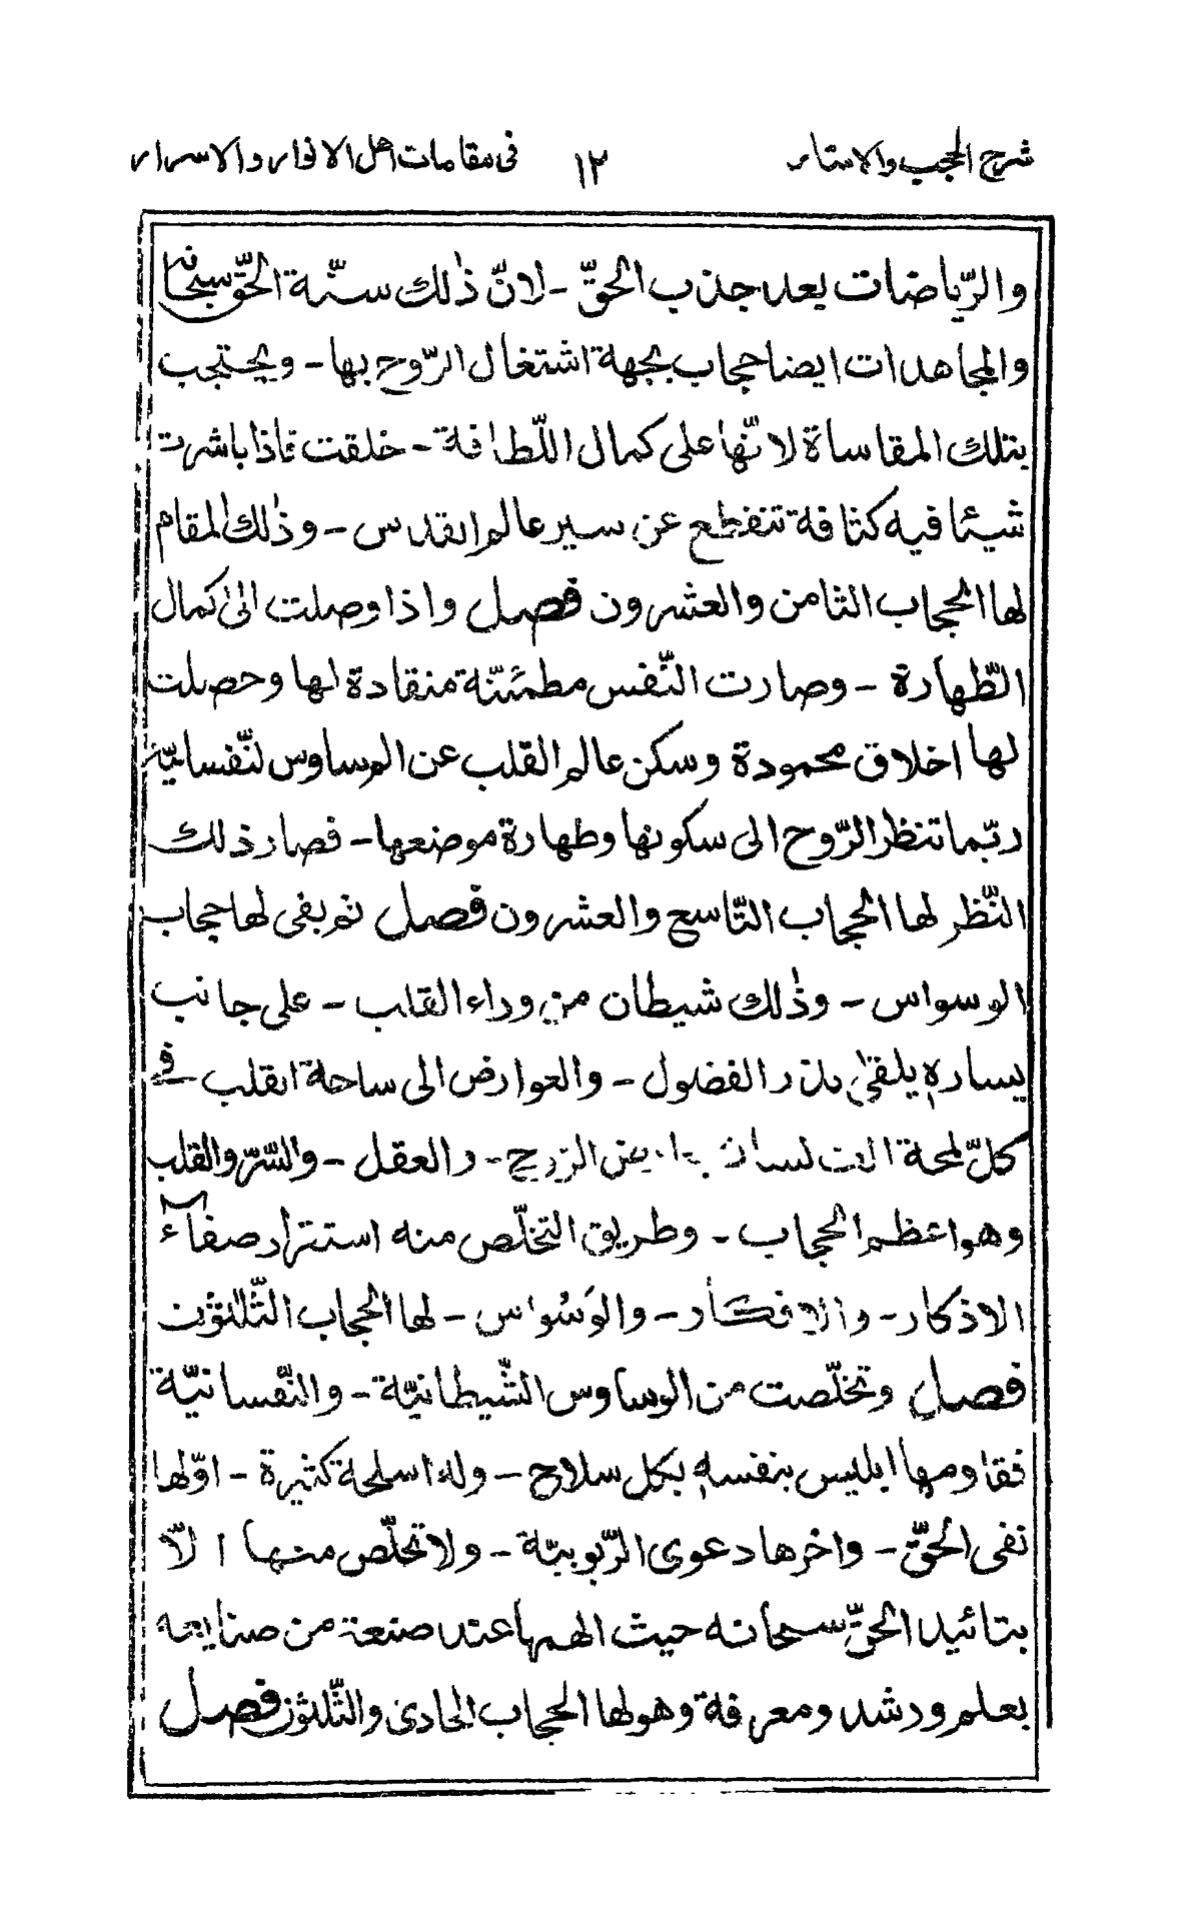 شرح الحجب والاستار ١٢ فى مقامات اهل الانوار والاسرار
والرّياضات بعد جذب الحقّ - لانّ ذٰلك سنّة الحقّ سبحانه
والمجاهدات ايضا حجاب بجهة اشتغال الرّوح بها - ويحتجب
بتلك المقاساة لانّها على كمال اللّطافة - خلقت فاذا باشرت
شيئا فيه كثافة تنقطع عن سير عالم القدس - وذٰلك المقام
لها الحجاب الثامن والعشرون فصل واذا وصلت الىٰ كمال
الطّهارة - وصارت النّفس مطمئنّة منقادة لها وحصلت
لها اخلاق محمودة وسكن عالم القلب عن الوساوس لنّفسانيّة
ربّما تنظر الرّوح الى سكونها وطهارة موضعها - فصار ذلك
النّظر لها الحجاب التّاسع والعشرون فصل ثم بقى لها حجاب
الوسواس - وذٰلك شيطان من وراء القلب - على جانب
يساره يلقىٰ بذر الفضول - والعوارض الى ساحة القلب فى
كلّ لمحة الف لسان الروح - والعقل - والسّرّ والقلب
وهو اعظم الحجاب - وطريق التخلّص منه استتراد صفآء
الاذكار - والافكار - والوَسْواس - لها الحجاب الثّلٰثون
فصل وتخلّصت من الوساوس الشّيطانيّة - والنّفسانيّة
فقاومها ابليس بنفسه بكل سلاح - وله اسلحة كثيرة - اوّلها
نفى الحقّ - واخرها دعوى الرّبوبيّة - ولا تخلّص منها الّا
بتائيد الحقّ سبحانه حيث الهمها عند صنعة من صنايعه
بعلم ورشد ومعرفة وهو لها الحجاب الحادى والثّلٰثون فصل